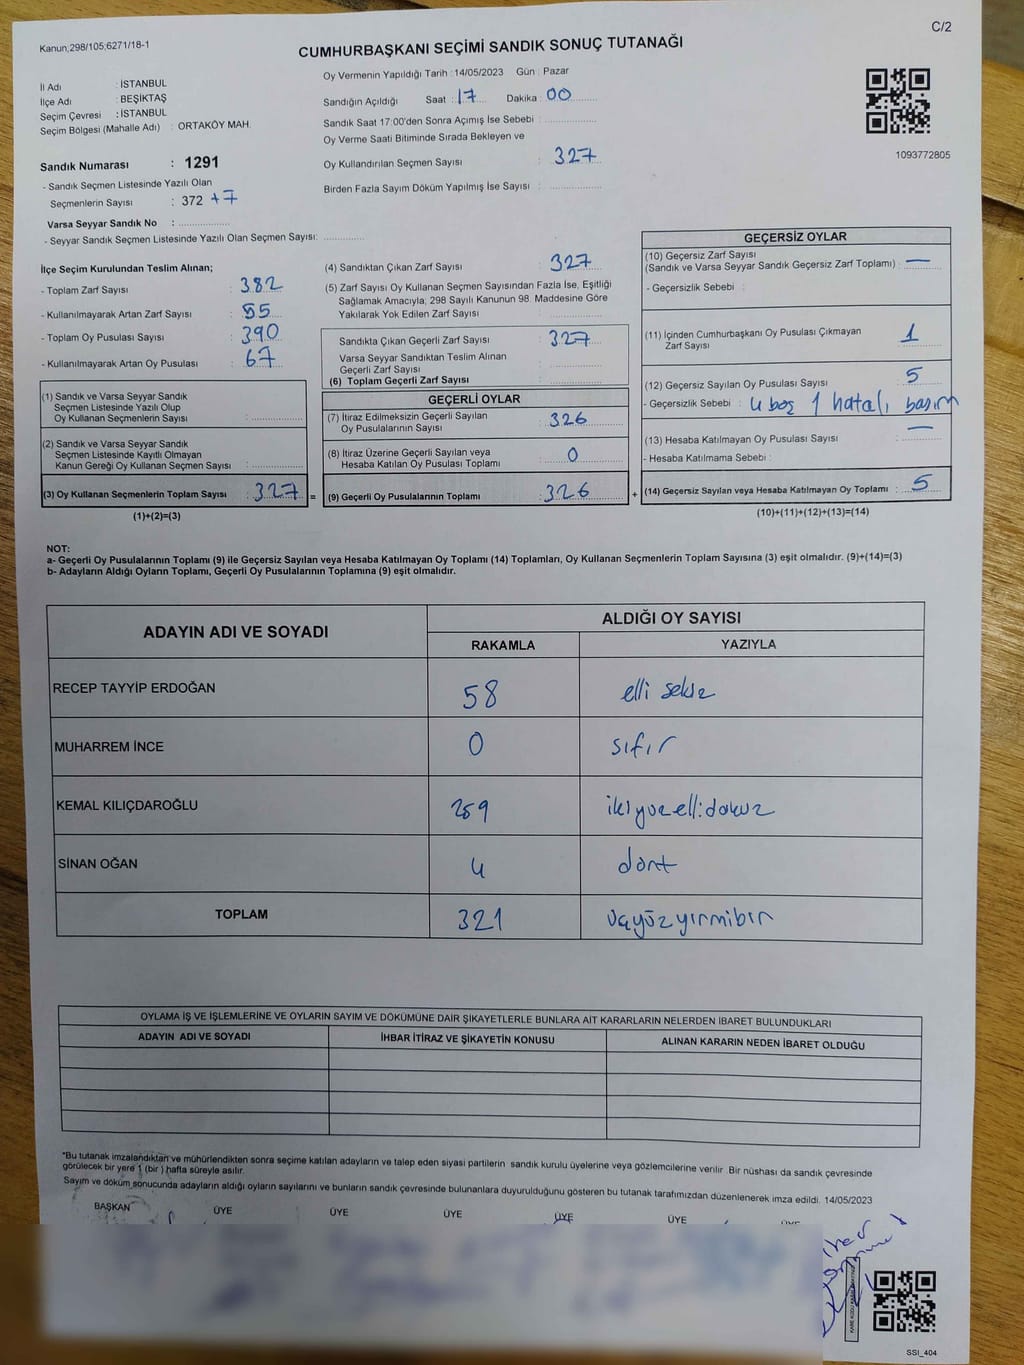 Kanun;298/105;6271/18-1
C/2
CUMHURBAŞKANI SEÇİMİ SANDIK SONUÇ TUTANAĞI
İl Adı : İSTANBUL
İlçe Adı : BEŞİKTAŞ
Seçim Çevresi : İSTANBUL
Seçim Bölgesi (Mahalle Adı) : ORTAKÖY MAH.
Sandık Numarası : 1291
- Sandık Seçmen Listesinde Yazılı Olan
Seçmenlerin Sayısı : 372 +7
Varsa Seyyar Sandık No :
- Seyyar Sandık Seçmen Listesinde Yazılı Olan Seçmen Sayısı:
Oy Vermenin Yapıldığı Tarih : 14/05/2023 Gün : Pazar
Sandığın Açıldığı Saat : 17 Dakika : 00
Sandık Saat 17:00'den Sonra Açımış İse Sebebi :
Oy Verme Saati Bitiminde Sırada Bekleyen ve
Oy Kullandırılan Seçmen Sayısı : 327
Birden Fazla Sayım Döküm Yapılmış İse Sayısı :
1093772805
İlçe Seçim Kurulundan Teslim Alınan;
- Toplam Zarf Sayısı : 382
- Kullanılmayarak Artan Zarf Sayısı : 55
- Toplam Oy Pusulası Sayısı : 390
- Kullanılmayarak Artan Oy Pusulası : 67
(1) Sandık ve Varsa Seyyar Sandık
Seçmen Listesinde Yazılı Olup
Oy Kullanan Seçmenlerin Sayısı :
(2) Sandık ve Varsa Seyyar Sandık
Seçmen Listesinde Kayıtlı Olmayan
Kanun Gereği Oy Kullanan Seçmen Sayısı :
(3) Oy Kullanan Seçmenlerin Toplam Sayısı : 327 =
(1)+(2)=(3)
(4) Sandıktan Çıkan Zarf Sayısı : 327
(5) Zarf Sayısı Oy Kullanan Seçmen Sayısından Fazla İse, Eşitliği
Sağlamak Amacıyla; 298 Sayılı Kanunun 98. Maddesine Göre
Yakılarak Yok Edilen Zarf Sayısı :
Sandıkta Çıkan Geçerli Zarf Sayısı : 327
Varsa Seyyar Sandıktan Teslim Alınan
Geçerli Zarf Sayısı :
(6) Toplam Geçerli Zarf Sayısı :
GEÇERLİ OYLAR
(7) İtiraz Edilmeksizin Geçerli Sayılan
Oy Pusulalarının Sayısı : 326
(8) İtiraz Üzerine Geçerli Sayılan veya
Hesaba Katılan Oy Pusulası Toplamı : 0
(9) Geçerli Oy Pusulalarının Toplamı : 326 +
GEÇERSİZ OYLAR
(10) Geçersiz Zarf Sayısı
(Sandık ve Varsa Seyyar Sandık Geçersiz Zarf Toplamı) : —
- Geçersizlik Sebebi :
(11) İçinden Cumhurbaşkanı Oy Pusulası Çıkmayan
Zarf Sayısı : 1
(12) Geçersiz Sayılan Oy Pusulası Sayısı : 5
- Geçersizlik Sebebi : 4 boş 1 hatalı basım
(13) Hesaba Katılmayan Oy Pusulası Sayısı : —
- Hesaba Katılmama Sebebi :
(14) Geçersiz Sayılan veya Hesaba Katılmayan Oy Toplamı : 5
(10)+(11)+(12)+(13)=(14)
NOT:
a- Geçerli Oy Pusulalarının Toplamı (9) ile Geçersiz Sayılan veya Hesaba Katılmayan Oy Toplamı (14) Toplamları, Oy Kullanan Seçmenlerin Toplam Sayısına (3) eşit olmalıdır. (9)+(14)=(3)
b- Adayların Aldığı Oyların Toplamı, Geçerli Oy Pusulalarının Toplamına (9) eşit olmalıdır.
ADAYIN ADI VE SOYADI
ALDIĞI OY SAYISI
RAKAMLA YAZIYLA
RECEP TAYYİP ERDOĞAN 58 elli sekiz
MUHARREM İNCE 0 sıfır
KEMAL KILIÇDAROĞLU 259 ikiyüzellidokuz
SİNAN OĞAN 4 dört
TOPLAM 321 üçyüzyirmibir
OYLAMA İŞ VE İŞLEMLERİNE VE OYLARIN SAYIM VE DÖKÜMÜNE DAİR ŞİKAYETLERLE BUNLARA AİT KARARLARIN NELERDEN İBARET BULUNDUKLARI
ADAYIN ADI VE SOYADI İHBAR İTİRAZ VE ŞİKAYETİN KONUSU ALINAN KARARIN NEDEN İBARET OLDUĞU
*Bu tutanak imzalandıktan ve mühürlendikten sonra seçime katılan adayların ve talep eden siyasi partilerin sandık kurulu üyelerine veya gözlemcilerine verilir. Bir nüshası da sandık çevresinde
görülecek bir yere 1 (bir ) hafta süreyle asılır.
Sayım ve döküm sonucunda adayların aldığı oyların sayılarını ve bunların sandık çevresinde bulunanlara duyurulduğunu gösteren bu tutanak tarafımızdan düzenlenerek imza edildi. 14/05/2023
BAŞKAN ÜYE ÜYE ÜYE ÜYE ÜYE ÜYE
SSI_404